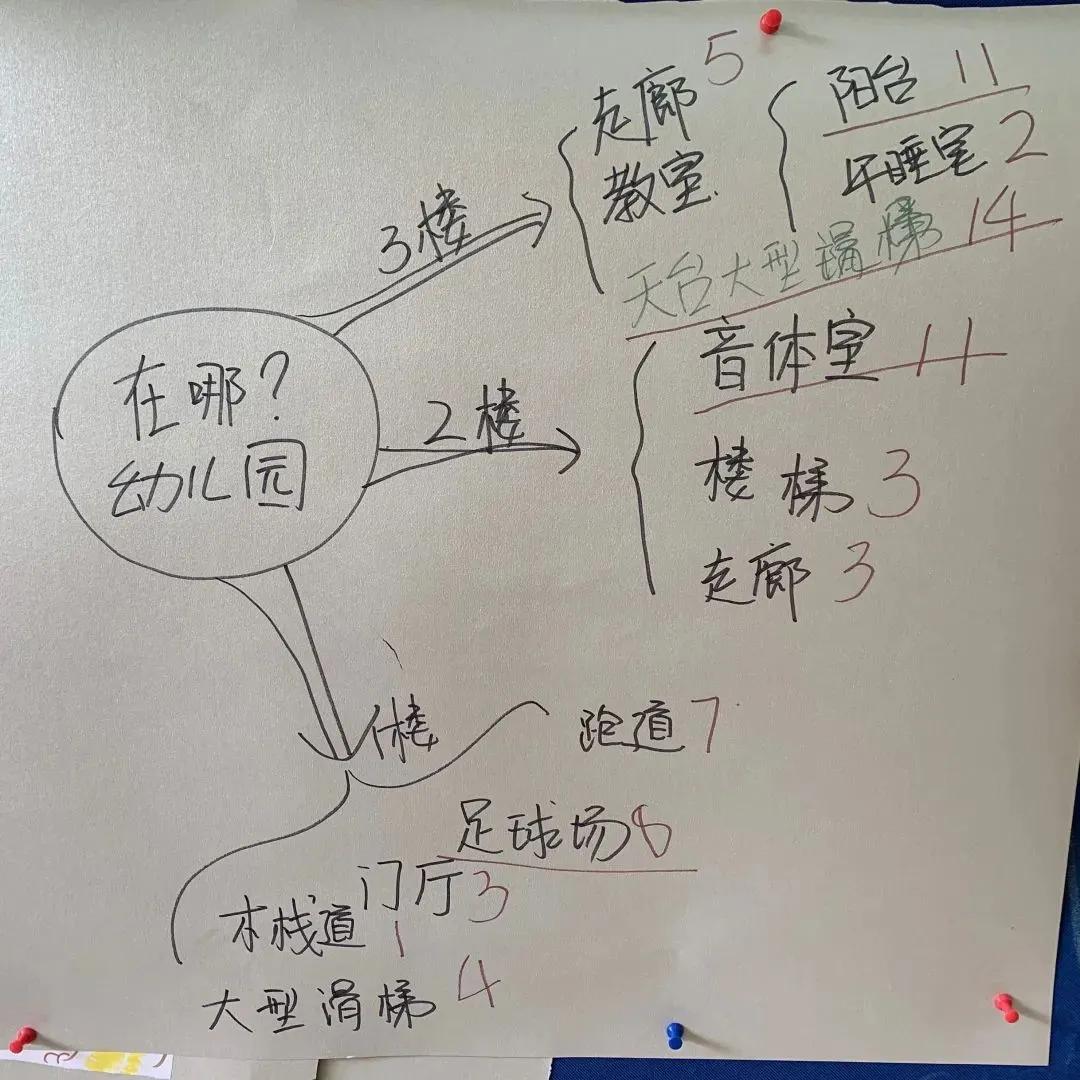 在哪?
幼儿园
3楼
走廊 5
教室
阳台 11
午睡室 2
天台大型滑梯 14
2楼
音体室 11
楼梯 3
走廊 3
1楼
跑道 7
足球场 8
门厅 3
木栈道 1
大型滑梯 4